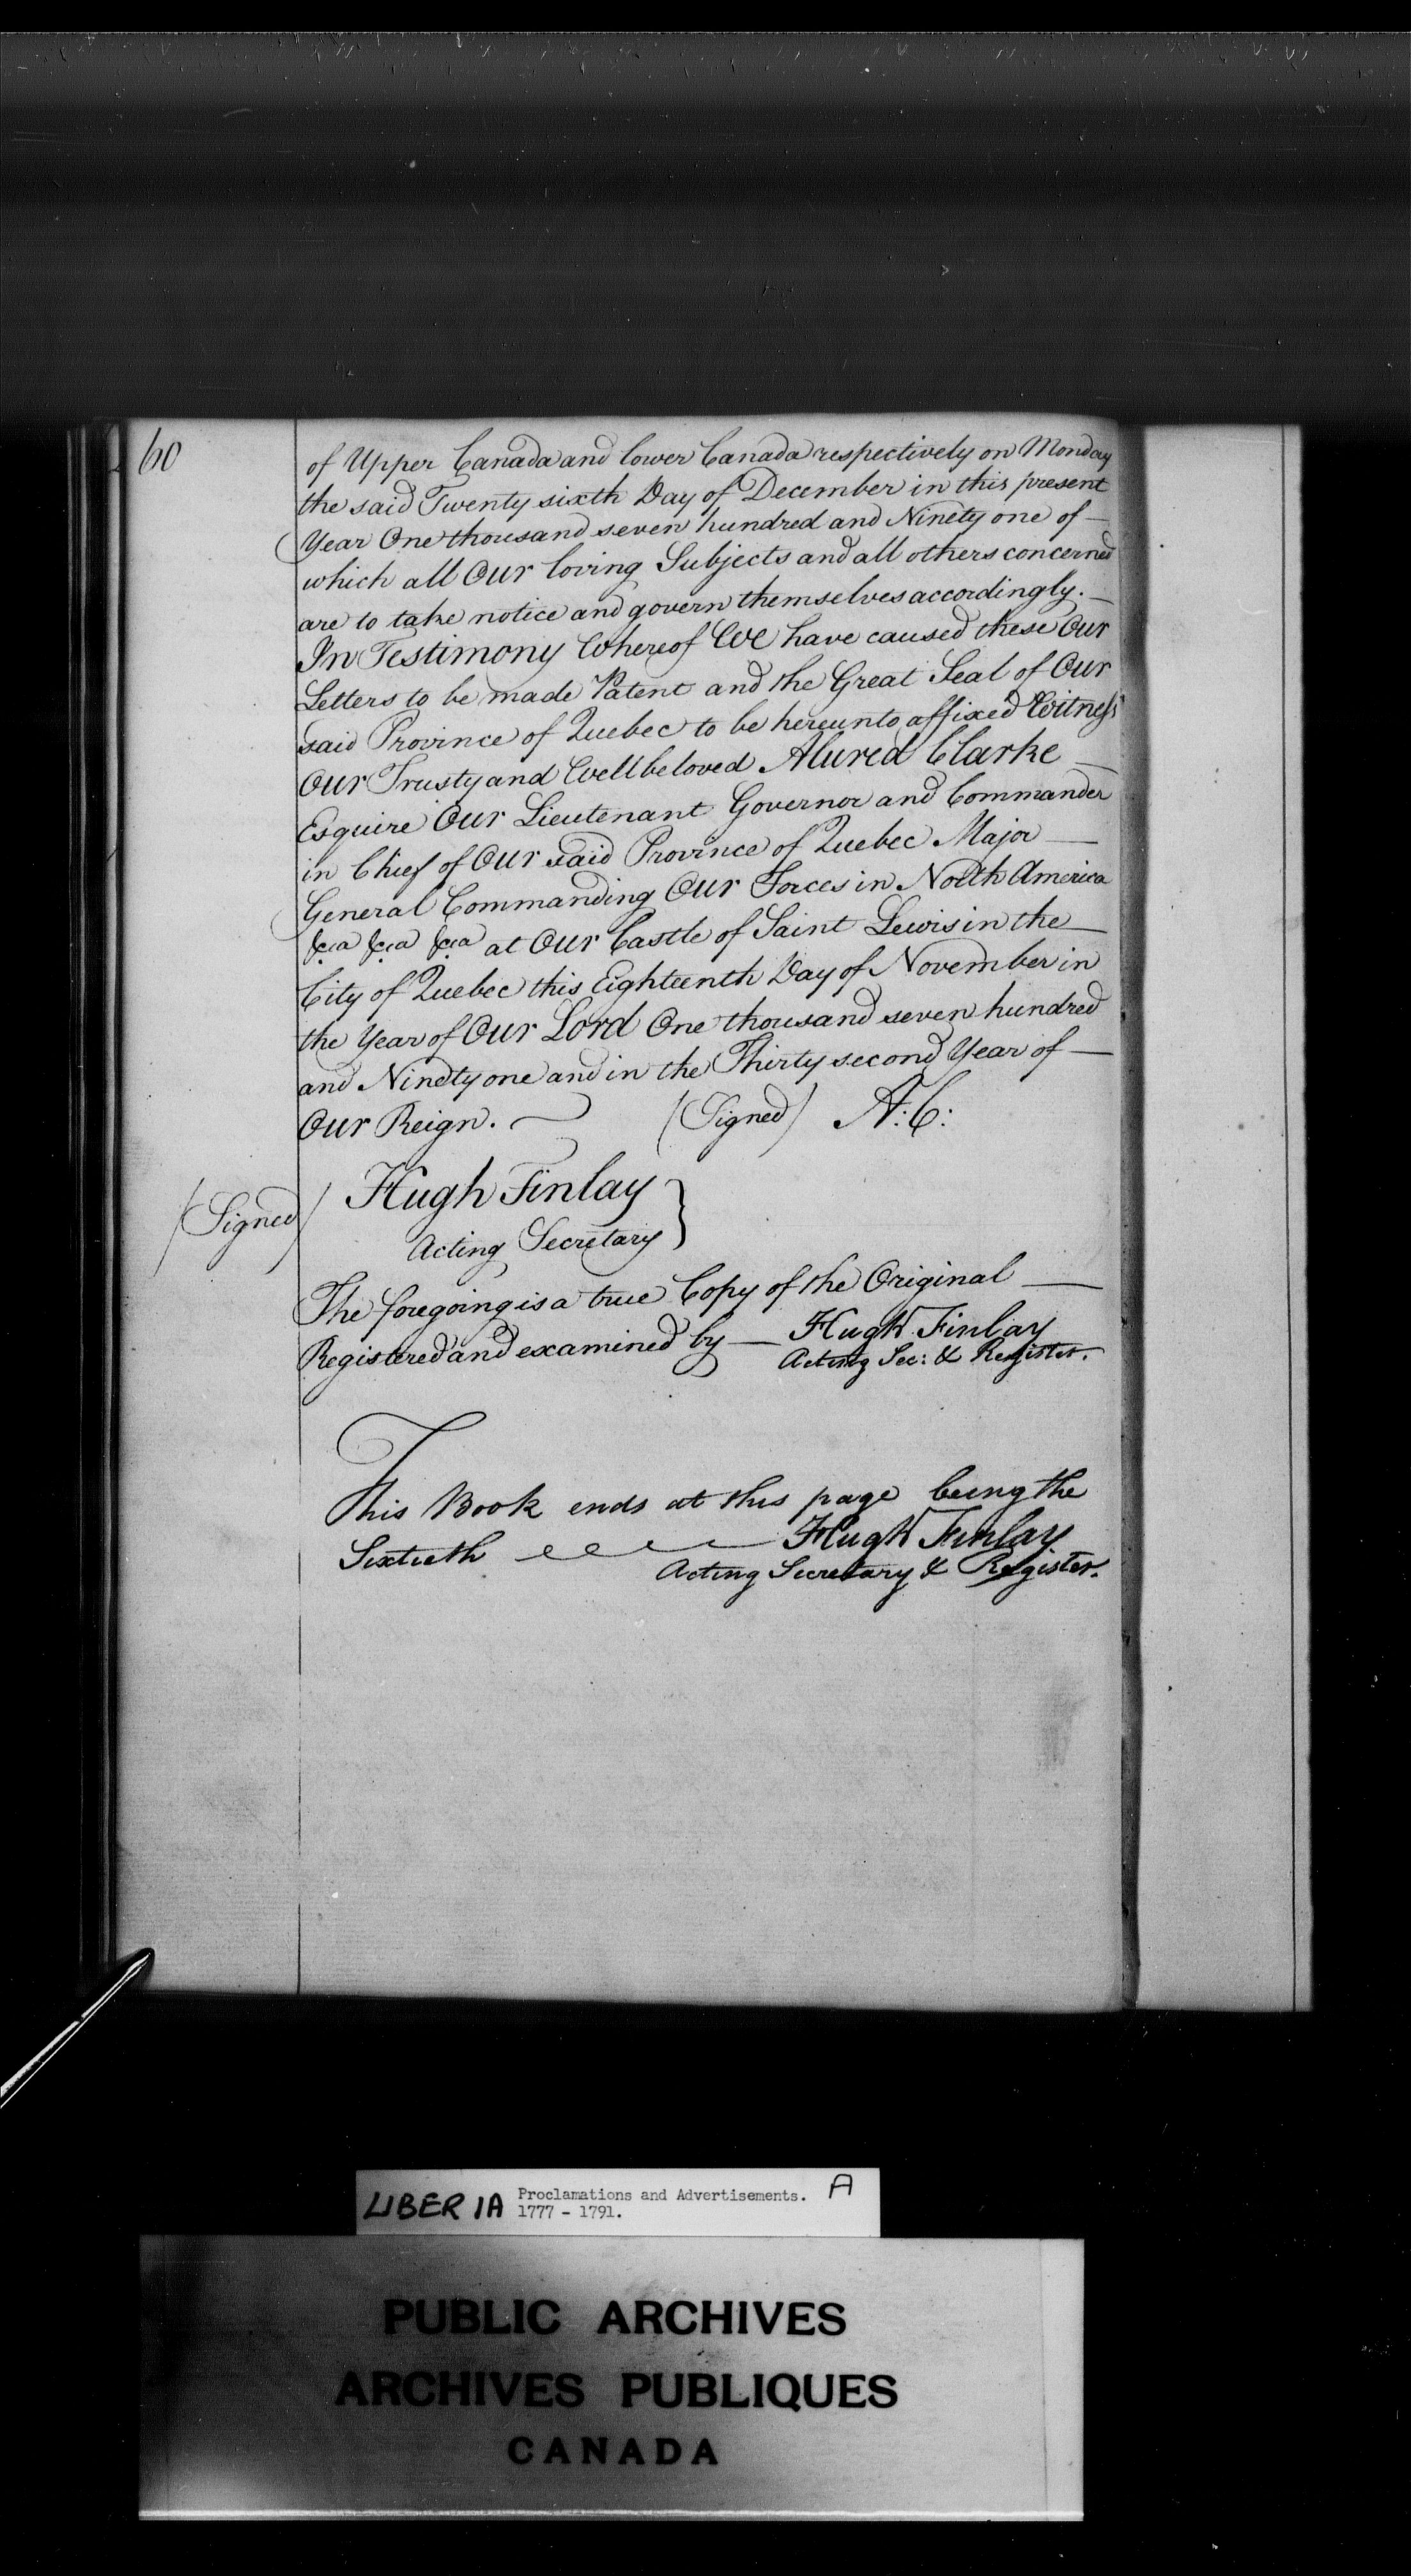 60
of Upper Canada and lower Canada respectively on Monday
the said Twenty sixth Day of December in this present
Year One thousand seven hundred and Ninety one of —
which all Our loving Subjects and all others concerned
are to take notice and govern themselves accordingly. —
In Testimony Whereof We have caused these Our
Letters to be made Patent and the Great Seal of Our
said Province of Quebec to be hereunto affixed Witness
Our Trusty and Wellbeloved Alured Clarke —
Esquire Our Lieutenant Governor and Commander
in Chief of Our said Province of Quebec Major —
General Commanding Our Forces in North America
&ca &ca &ca at Our Castle of Saint Lewis in the —
City of Quebec this Eighteenth Day of November in
the Year of Our Lord One thousand seven hundred
and Ninety one and in the Thirty second Year of —
Our Reign. — (Signed) A:C:
(Signed) Hugh Finlay }
Acting Secretary
The foregoing is a true Copy of the Original —
Registered and examined by — Hugh Finlay
Acting Sec: & Register.
This Book ends at this page being the
Sixtieth — Hugh Finlay
Acting Secretary & Register.
LIBER 1A Proclamations and Advertisements. A
1777 - 1791.
PUBLIC ARCHIVES
ARCHIVES PUBLIQUES
CANADA